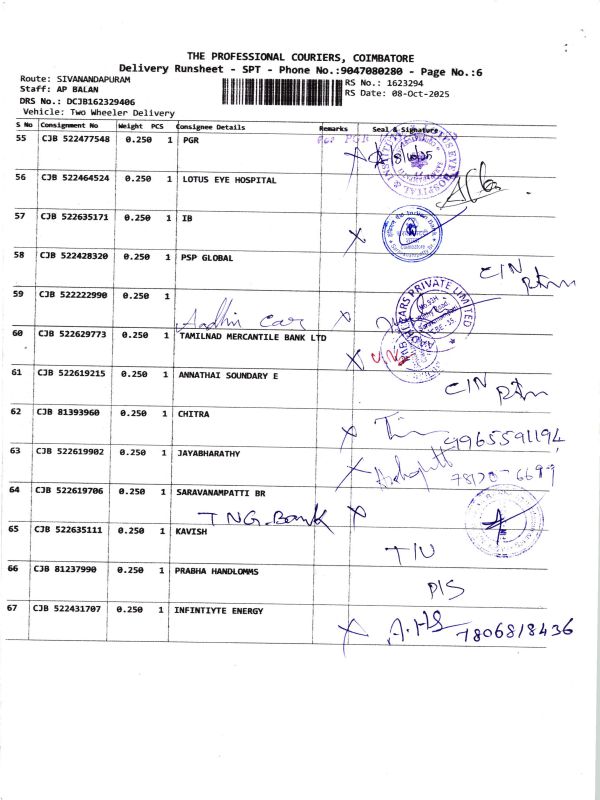 THE PROFESSIONAL COURIERS, COIMBATORE
Delivery Runsheet - SPT - Phone No.:9047080280 - Page No.:6
Route: SIVANANDAPURAM
RS No.: 1623294
Staff: AP BALAN
RS Date: 08-Oct-2025
DRS No.: DCJB162329406
Vehicle: Two Wheeler Delivery
S No Consignment No Weight PCS Consignee Details Remarks Seal & Signature
55 CJB 522477548 0.250 1 PGR
56 CJB 522464524 0.250 1 LOTUS EYE HOSPITAL
57 CJB 522635171 0.250 1 IB
58 CJB 522428320 0.250 1 PSP GLOBAL
CIN
59 CJB 522222990 0.250 1
Aadhi Car
60 CJB 522629773 0.250 1 TAMILNAD MERCANTILE BANK LTD
61 CJB 522619215 0.250 1 ANNATHAI SOUNDARY E
CIN
62 CJB 81393960 0.250 1 CHITRA
9965591194
63 CJB 522619902 0.250 1 JAYABHARATHY
64 CJB 522619706 0.250 1 SARAVANAMPATTI BR
TNG.Bank
65 CJB 522635111 0.250 1 KAVISH
T/U
66 CJB 81237990 0.250 1 PRABHA HANDLOMMS
P/S
67 CJB 522431707 0.250 1 INFINTIYTE ENERGY
7806818436